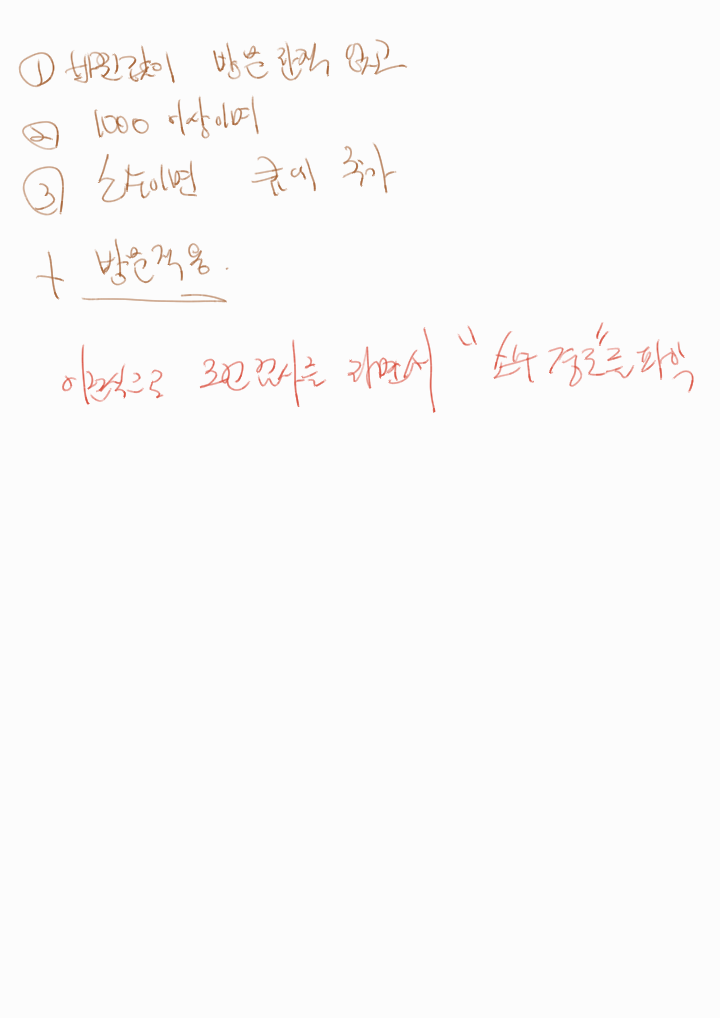 ① 해당값이 방문한적 없고
② 1000 이상이며
③ 소수이면 큐에 추가
+ 방문적용.
이런식으로 조건검사를 하면서 "소수 경로"를 파악